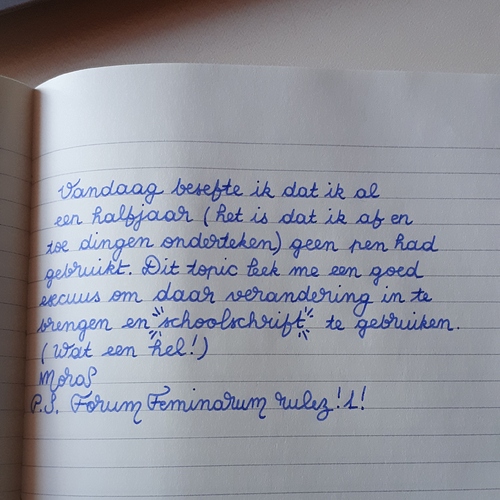 Vandaag besefte ik dat ik al
een halfjaar (het is dat ik af en
toe dingen onderteken) geen pen had
gebruikt. Dit topic leek me een goed
excuus om daar verandering in te
brengen en schoolschrift te gebruiken.
(Wat een hel!)
MoraS
P.S. Forum Feminarum rulez!1!